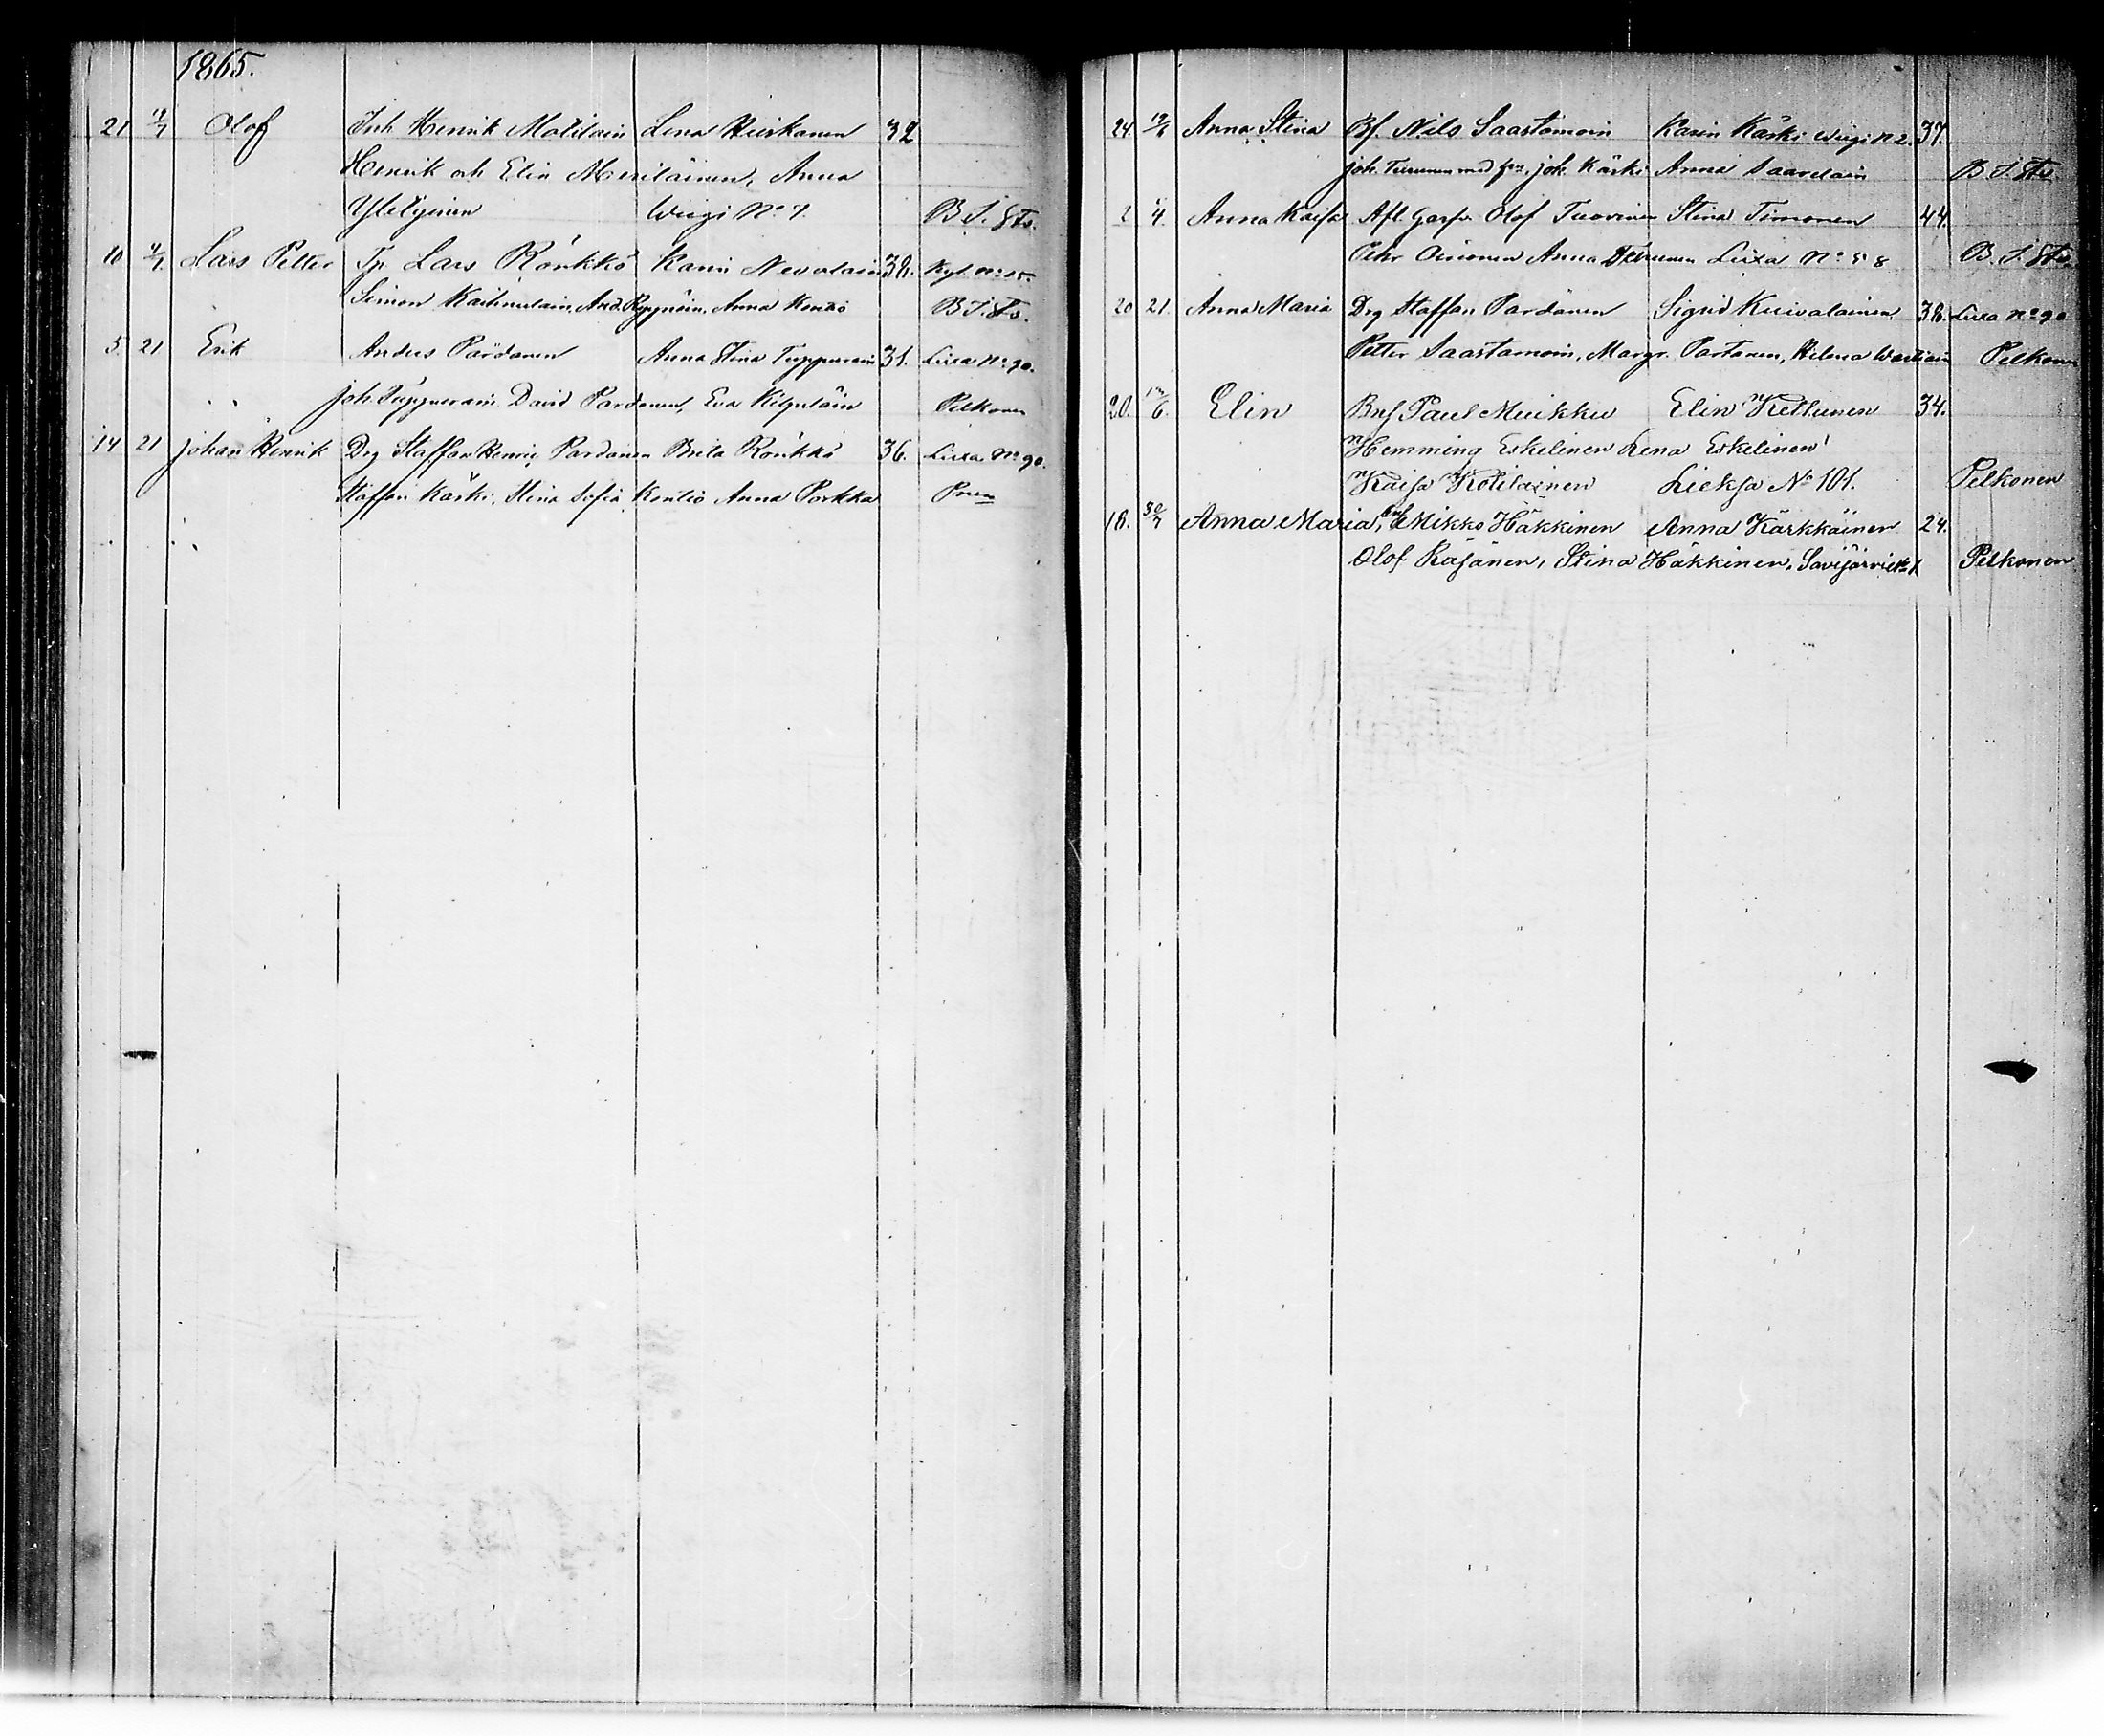 1865.
21 12/7 Olof Inh Henrik Motilain Lena Hiirkanen 32
Henrik och Elin Meriläinen, Anna
Yletyinen Wiigi No 7. B S. Sts.
10 4/7. Lars Petter Tp Lars Rönkkö Karin Nevalain 38. Kyl. No 15.
Simon Kaitinulain, And. Ryynäin, Anna Kontio B S. Sts.
5. 21 Erik Anders Pardanen Anna Stina Tuppurain 31. Lixa No 90.
Joh. Tuppurain David Pardanen, Eva Kilpeläin Pelkonen
14 21 Johan Henrik Drg Staffan Henric Pardanen Brita Rönkkö 36. Lixa No 90.
Staffan Kärki, Stina Sofia Kontio Anna Porkka Pnen
24. 19/6 Anna Stina Bf. Nils Saastamoin Karin Kärki Wiigi N 2. 37.
Joh. Turunen med Joh. Kärki Anna Saarelain B. S. Sts
2 4. Anna Kaisa Afl. Olof Tuovinen Stina Timonen 44.
Pehr Oinonen Anna Turunen Lixa No 58 B. S. Sts.
20 21. Anna Maria Drg Staffan Pardanen Sigrid Kuivalainen 38. Lixa No 90
Petter Saastamoin, Margr. Partanen, Helena Wartiain Pelkonen
20. 6. Elin Bnf Paul Muikku Elin Kettunen 34.
Hemming Eskelinen Lena Eskelinen
Kaisa Kotilainen Lieksa No 101. Pelkonen
18. 30/7 Anna Maria, Bnf Mikko Häkkinen Anna Kärkkäinen 24.
Olof Räsänen, Stina Häkkinen, Savijärvi Pelkonen